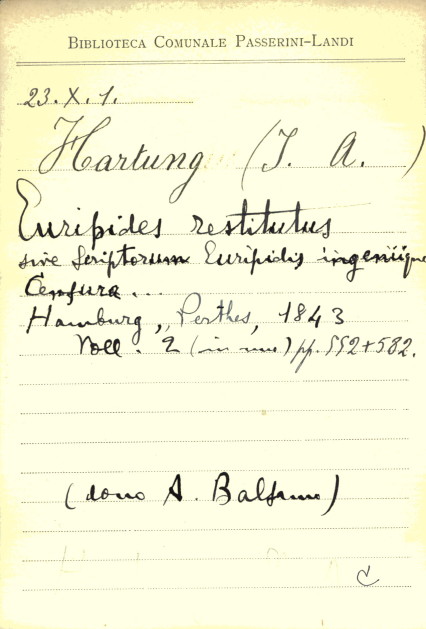 BIBLIOTECA COMUNALE PASSERINI-LANDI
23.X.1.
Hartung (J. A.)
Euripides restitutus
sive Scriptorum Euripidis ingeniique
Censura...
Hamburg, Perthes, 1843
Voll. 2 (in uno) pp. 592+582.
(dono A. Balsamo)